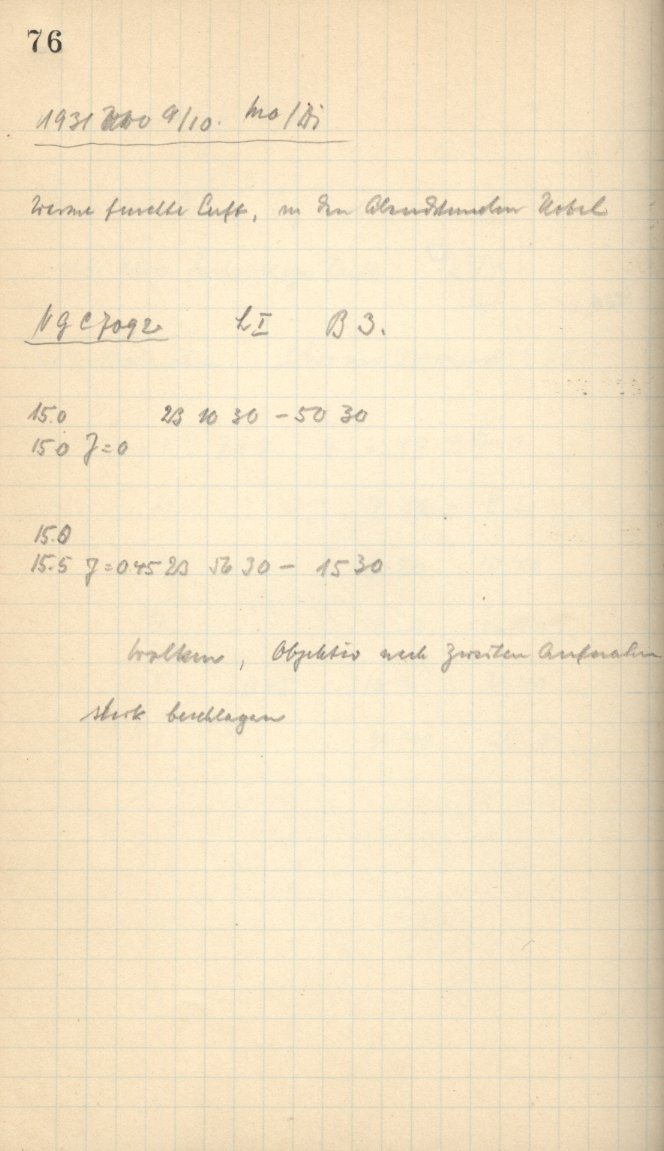 76
1931 Nov 9/10. Mo/Di
Warme feuchte Luft, in den Abendstunden Nebel
NGC 7092 L I B 3.
15.0 23 10 30 – 50 30
15.0 J = 0
15.0
15.5 J = 0.45 23 56 30 – 15 30
Wolken, Objektiv nach zweiten Aufnahm
stark beschlagen